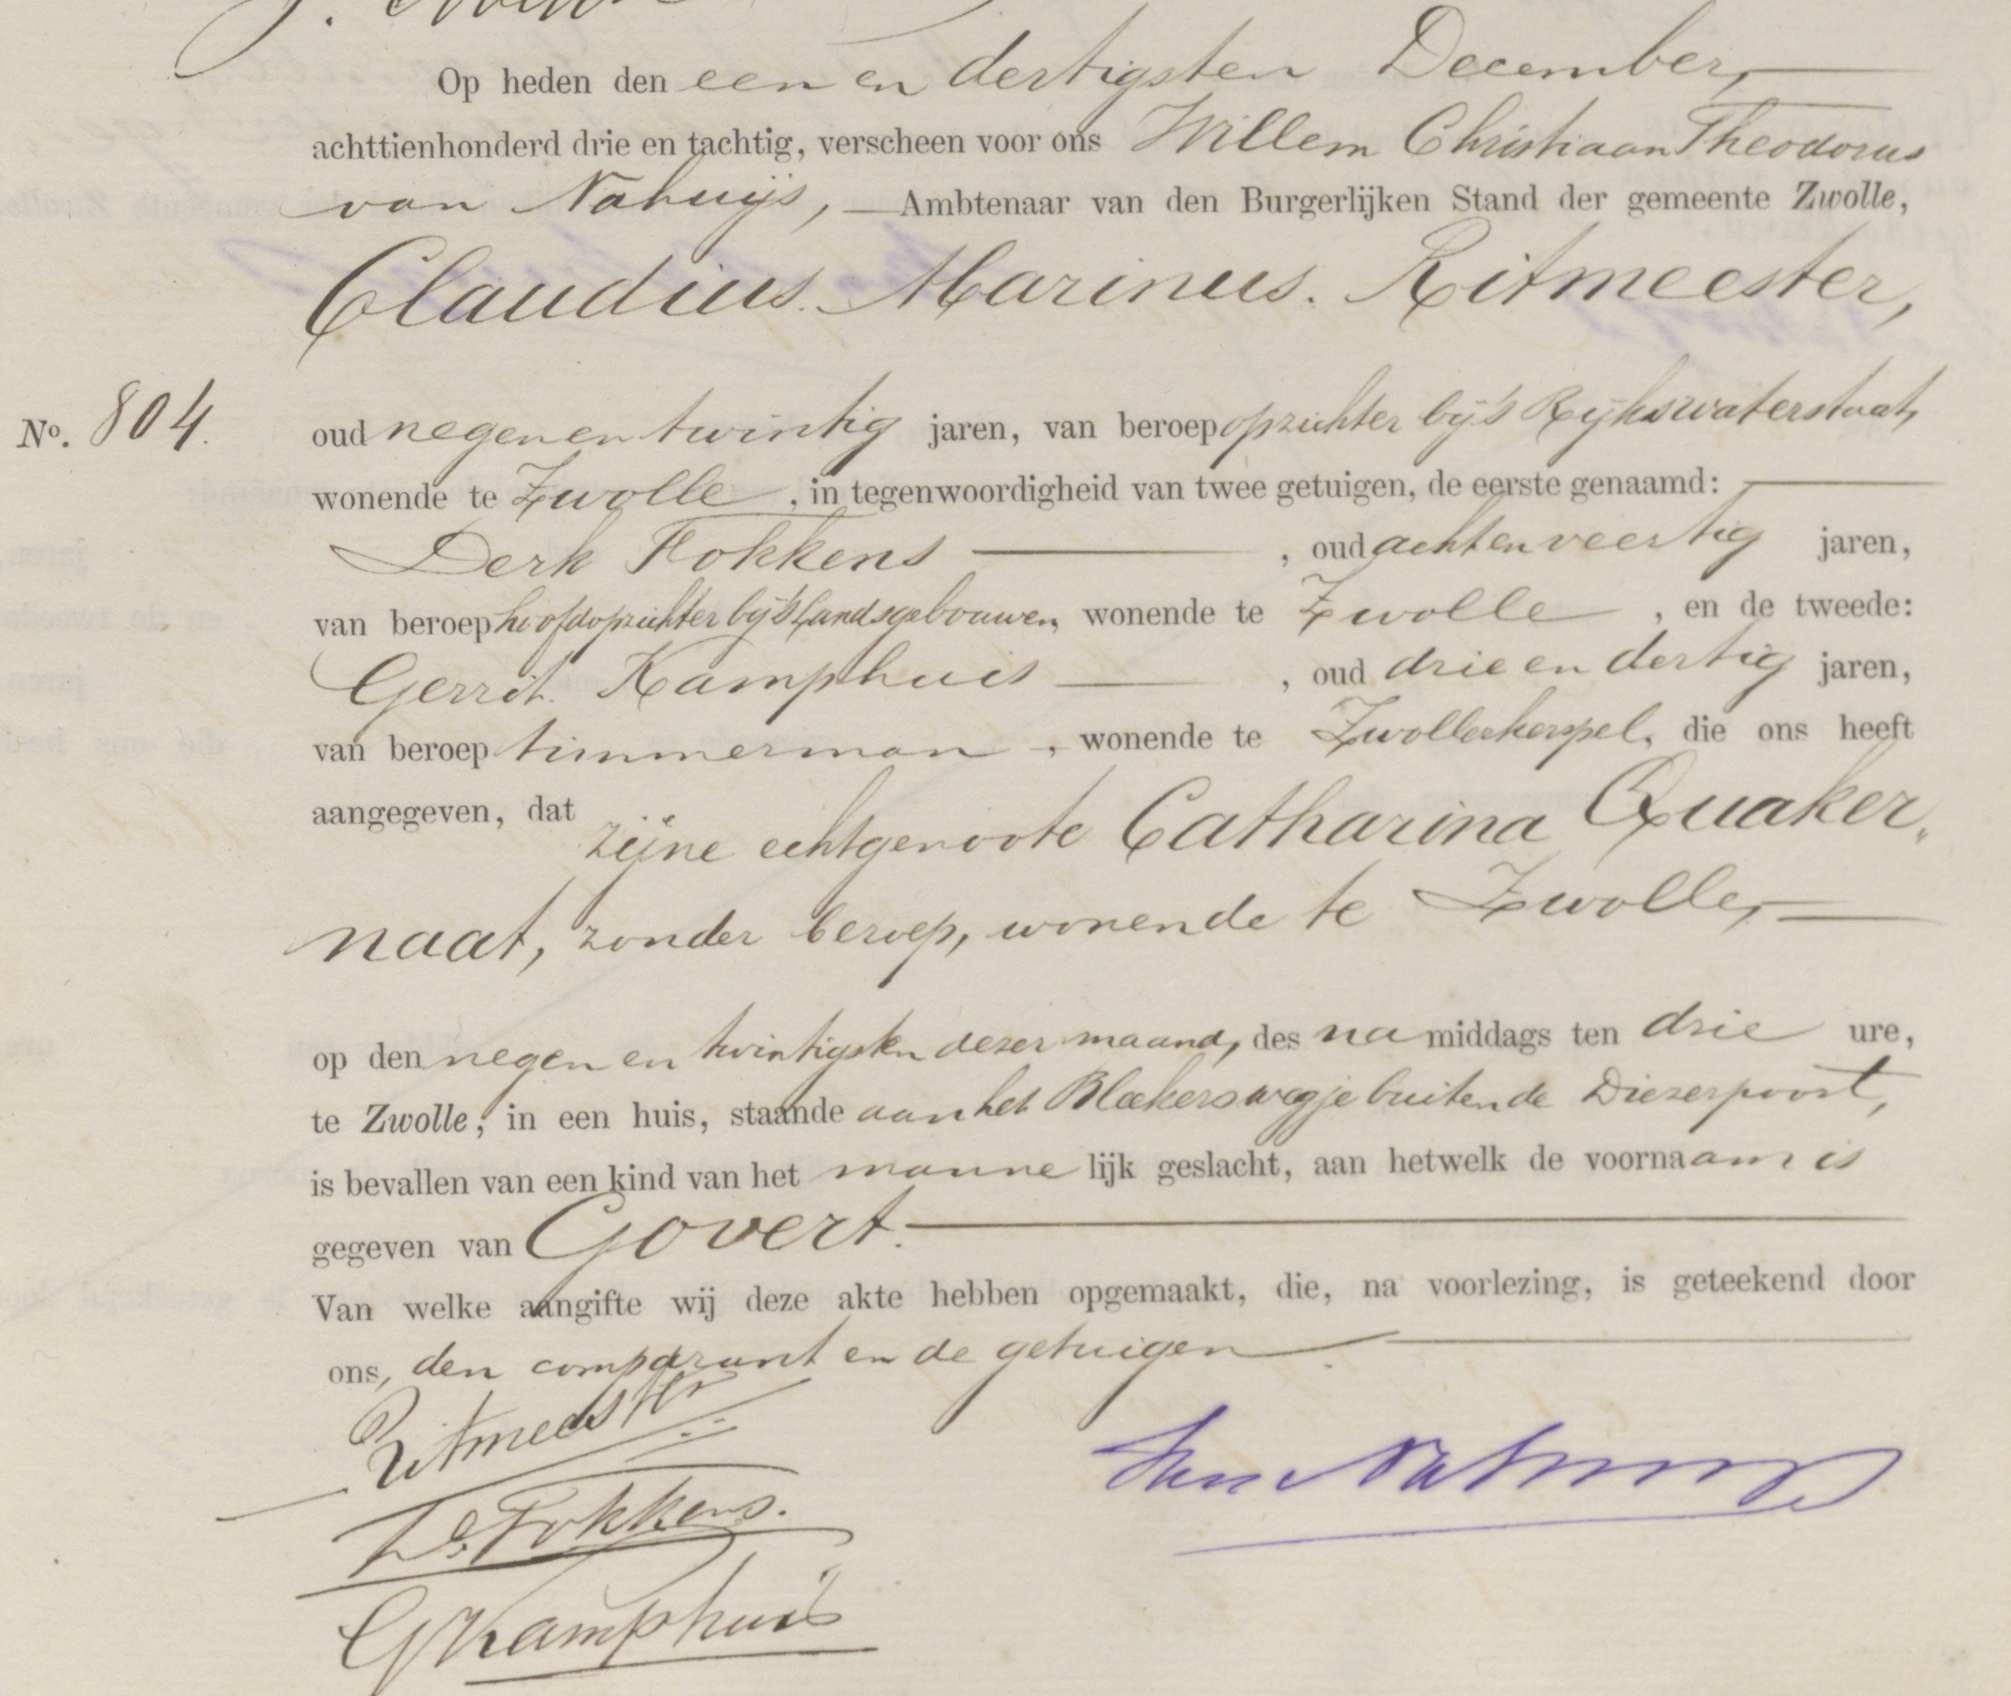 Op heden den een en dertigsten December,
achttienhonderd drie en tachtig, verscheen voor ons Willem Christiaan Theodorus
van Nahuijs, Ambtenaar van den Burgerlijken Stand der gemeente Zwolle,
Claudius Marinus Ritmeester,
No. 804.
oud negen en twintig jaren, van beroep opzichter bij 's Rijkswaterstaat,
wonende te Zwolle, in tegenwoordigheid van twee getuigen, de eerste genaamd:
Derk Fokkens, oud acht en veertig jaren,
van beroep hoofdopzichter bij 's Landsgebouwen, wonende te Zwolle, en de tweede:
Gerrit Kamphuis, oud drie en dertig jaren,
van beroep timmerman, wonende te Zwollerkerspel, die ons heeft
aangegeven, dat
zijne echtgenoote Catharina Quaker-
naat, zonder beroep, wonende te Zwolle,
op den negen en twintigsten dezer maand, des namiddags ten drie ure,
te Zwolle, in een huis, staande aan het Bleekerswegje buiten de Diezerpoort,
is bevallen van een kind van het mannelijk geslacht, aan hetwelk de voornaam is
gegeven van Govert.
Van welke aangifte wij deze akte hebben opgemaakt, die, na voorlezing, is geteekend door
ons, den comparant en de getuigen.
Ritmeester
D. Fokkens.
Van Nahuijs
G Kamphuis